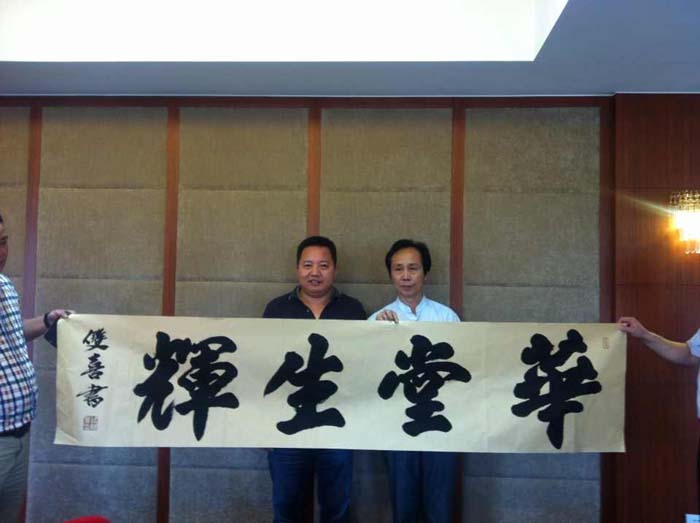 華堂生輝
雙喜書